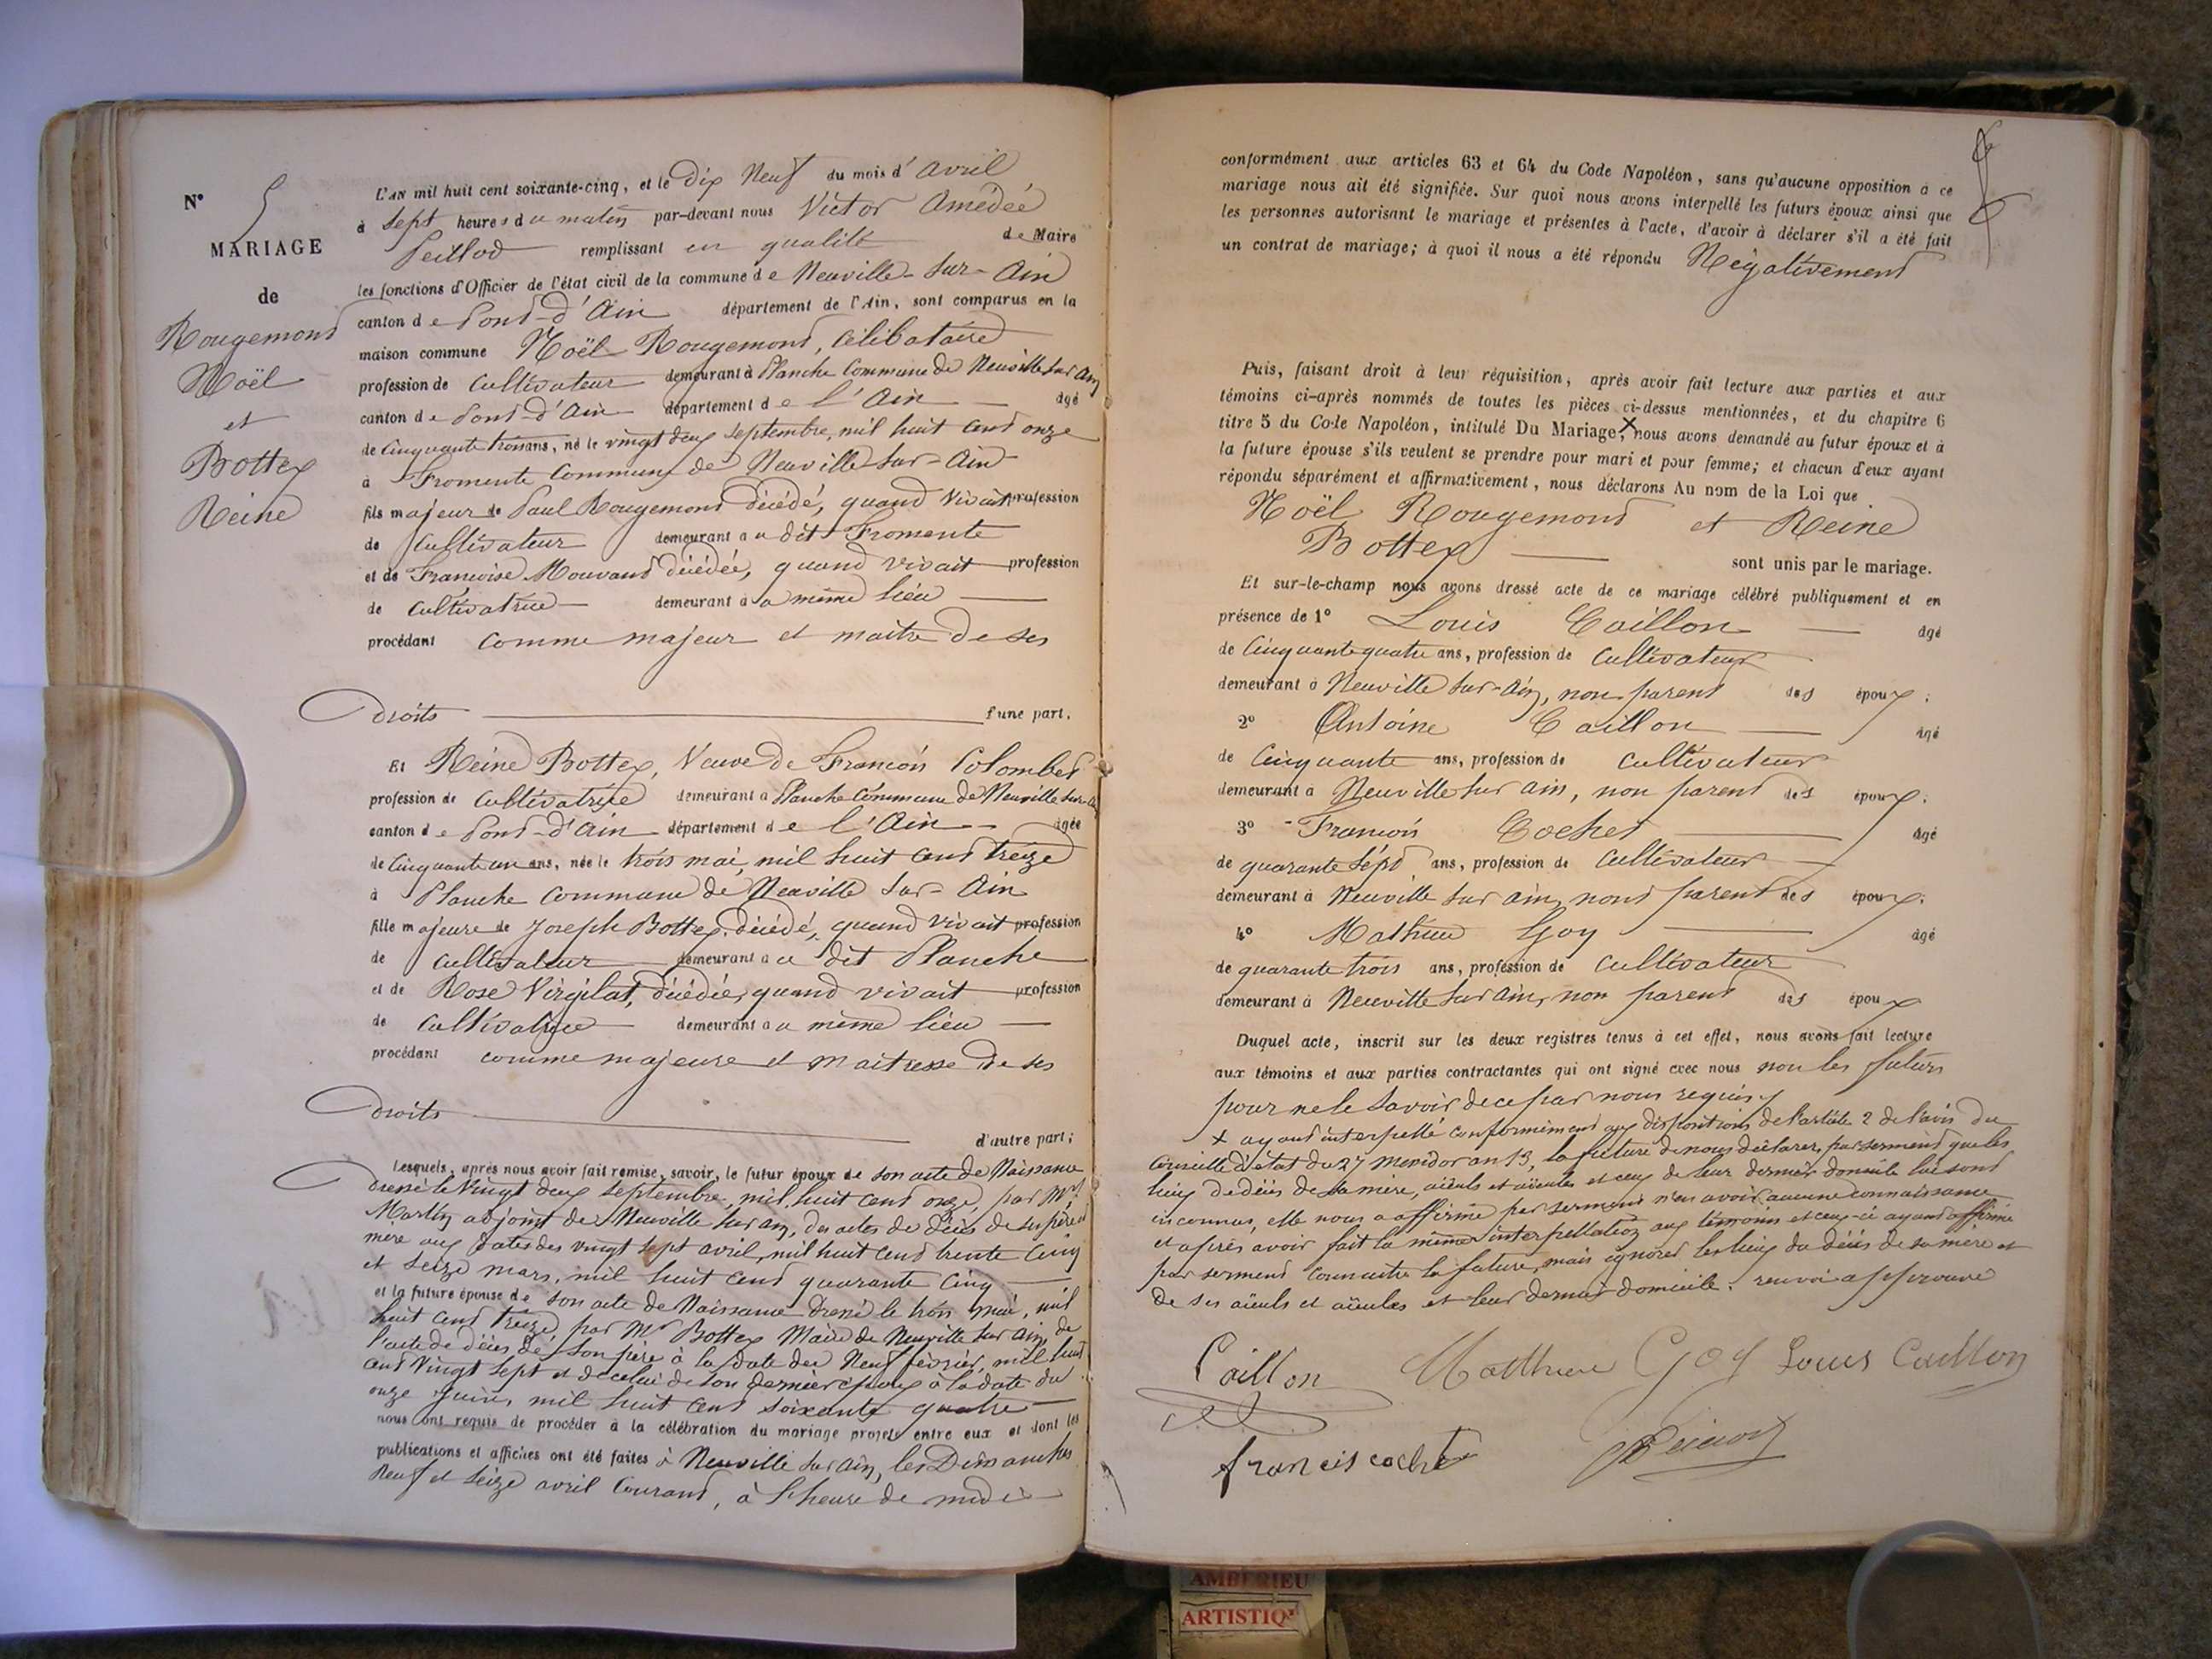 N° 5
MARIAGE
de
Rougemond
Noël
et
Bottex
Reine
L'AN mil huit cent soixante-cinq, et le dix Neuf du mois d'avril
à sept heures du matin par-devant nous Victor Amédée
Peillod remplissant en qualité de Maire
les fonctions d'Officier de l'état civil de la commune de Neuville-sur-Ain
canton de Pont-d'Ain département de l'Ain, sont comparus en la
maison commune Noël Rougemond, célibataire
profession de cultivateur demeurant à Planche Commune de Neuville sur ain
canton de Pont-d'Ain département de l'Ain âgé
de cinquante trois ans, né le vingt deux septembre, mil huit cent onze
à Fromente Commune de Neuville-sur-Ain
fils majeur de Paul Rougemond décédé, quand vivait profession
de cultivateur demeurant au dit Fromente
et de Françoise Mouvand décédée, quand vivait profession
de cultivatrice demeurant au même lieu
procédant comme majeur et maitre de ses
droits d'une part.
Et Reine Bottex, Veuve de François Colombet
profession de cultivatrice demeurant à Planche Commune de Neuville sur-ain
canton de Pont-d'Ain département de l'Ain âgée
de cinquante un ans, née le trois mai, mil huit cent treize
à Planche commune de Neuville sur-Ain
fille majeure de Joseph Bottex, décédé, quand vivait profession
de cultivateur demeurant au dit Planche
et de Rose Virgilat, décédée, quand vivait profession
de cultivatrice demeurant au même lieu
procédant comme majeure et maitresse de ses
droits
d'autre part;
Lesquels, après nous avoir fait remise, savoir, le futur époux de son acte de Naissance
dressé le vingt deux septembre, mil huit cent onze, par Mr
Martin adjoint de Neuville sur ain, des actes de décès de ses père et
mère aux dates des vingt sept avril, mil huit cent trente cinq
et seize mars, mil huit cent quarante cinq
et la future épouse de son acte de Naissance dressé le trois mai, mil
huit cent treize par Mr Bottex Maire de Neuville sur ain, de
l'acte de décès de son père à la date du Neuf février, mil huit
cent vingt sept et de celui de son dernier époux à la date du
onze juin, mil huit cent soixante quatre
nous ont requis de procéder à la célébration du mariage projeté entre eux et dont les
publications et affiches ont été faites à Neuville sur ain, les Dimanches
Neuf et Seize avril courant, à l'heure de midi
conformément aux articles 63 et 64 du Code Napoléon, sans qu'aucune opposition à ce
mariage nous ait été signifiée. Sur quoi nous avons interpellé les futurs époux ainsi que
les personnes autorisant le mariage et présentes à l'acte, d'avoir à déclarer s'il a été fait
un contrat de mariage; à quoi il nous a été répondu Négativement
Puis, faisant droit à leur réquisition, après avoir fait lecture aux parties et aux
témoins ci-après nommés de toutes les pièces ci-dessus mentionnées, et du chapitre 6
titre 5 du Code Napoléon, intitulé Du Mariage, x nous avons demandé au futur époux et à
la future épouse s'ils veulent se prendre pour mari et pour femme; et chacun d'eux ayant
répondu séparément et affirmativement, nous déclarons Au nom de la Loi que
Noël Rougemond et Reine
Bottex
sont unis par le mariage.
Et sur-le-champ nous avons dressé acte de ce mariage célébré publiquement et en
présence de 1° Louis Caillon âgé
de cinquante quatre ans, profession de cultivateur
demeurant à Neuville sur-Ain, non parent des époux;
2° Antoine Caillon âgé
de cinquante ans, profession de cultivateur
demeurant à Neuville sur ain, non parent des époux;
3° François Cochet âgé
de quarante sept ans, profession de cultivateur
demeurant à Neuville sur ain, non parent des époux;
4° Mathieu Goy âgé
de quarante trois ans, profession de cultivateur
demeurant à Neuville sur ain, non parent des époux
Duquel acte, inscrit sur les deux registres tenus à cet effet, nous avons fait lecture
aux témoins et aux parties contractantes qui ont signé avec nous non les futurs
pour ne le savoir de ce par nous requis
x ayant interpellé conformément aux dispositions de l'article 2 de l'avis du
Conseille d'état du 27 Messidor an 13, la future de nous déclarer par serment que les
lieux de décès de sa mère, aïeuls et aïeules et ceux de leur dernier domicile lui sont
inconnus, elle nous a affirmé par serment n'en avoir aucune connaissance
et après avoir fait la même interpellation aux témoins et ceux-ci ayant affirmé
par serment connaitre la future, mais ignorer les lieux du décès de sa mère et
de ses aïeuls et aïeules et leur dernier domicile. renvoi approuvé
Caillon Matthieu Goy Louis Caillon
francis cochet
AMBERIEU
ARTISTIQ